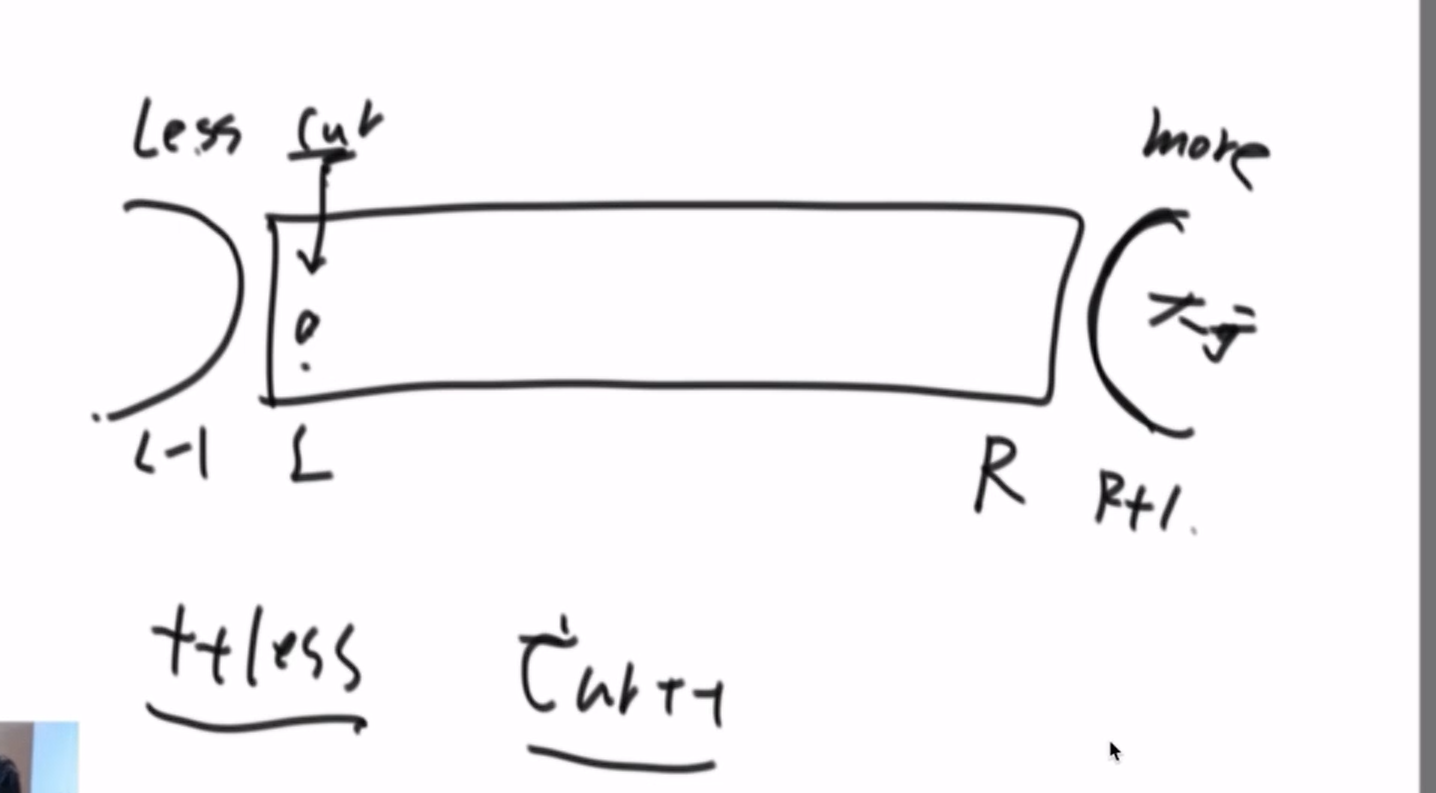 Less cur more
0
L-1 L R R+1
++less cur++